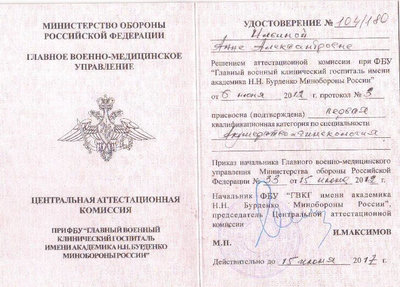 МИНИСТЕРСТВО ОБОРОНЫ
РОССИЙСКОЙ ФЕДЕРАЦИИ
ГЛАВНОЕ ВОЕННО-МЕДИЦИНСКОЕ
УПРАВЛЕНИЕ
ЦЕНТРАЛЬНАЯ АТТЕСТАЦИОННАЯ
КОМИССИЯ
ПРИ ФБУ "ГЛАВНЫЙ ВОЕННЫЙ
КЛИНИЧЕСКИЙ ГОСПИТАЛЬ
ИМЕНИ АКАДЕМИКА Н.Н. БУРДЕНКО
МИНОБОРОНЫ РОССИИ"
УДОСТОВЕРЕНИЕ № 104/180
Ильиной
Анне Александровне
Решением аттестационной комиссии при ФБУ
"Главный военный клинический госпиталь имени
академика Н.Н. Бурденко Минобороны России"
от 6 июня 2012 г. протокол № 3
присвоена (подтверждена) первая
квалификационная категория по специальности
акушерство и гинекология
Приказ начальника Главного военно-медицинского
управления Министерства обороны Российской
Федерации № 33 от 15 июня 2012 г.
Начальник ФБУ "ГВКГ имени академика
Н.Н. Бурденко Минобороны России",
председатель Центральной аттестационной
комиссии
И.МАКСИМОВ
М.П.
Действительно до 15 июня 2017 г.